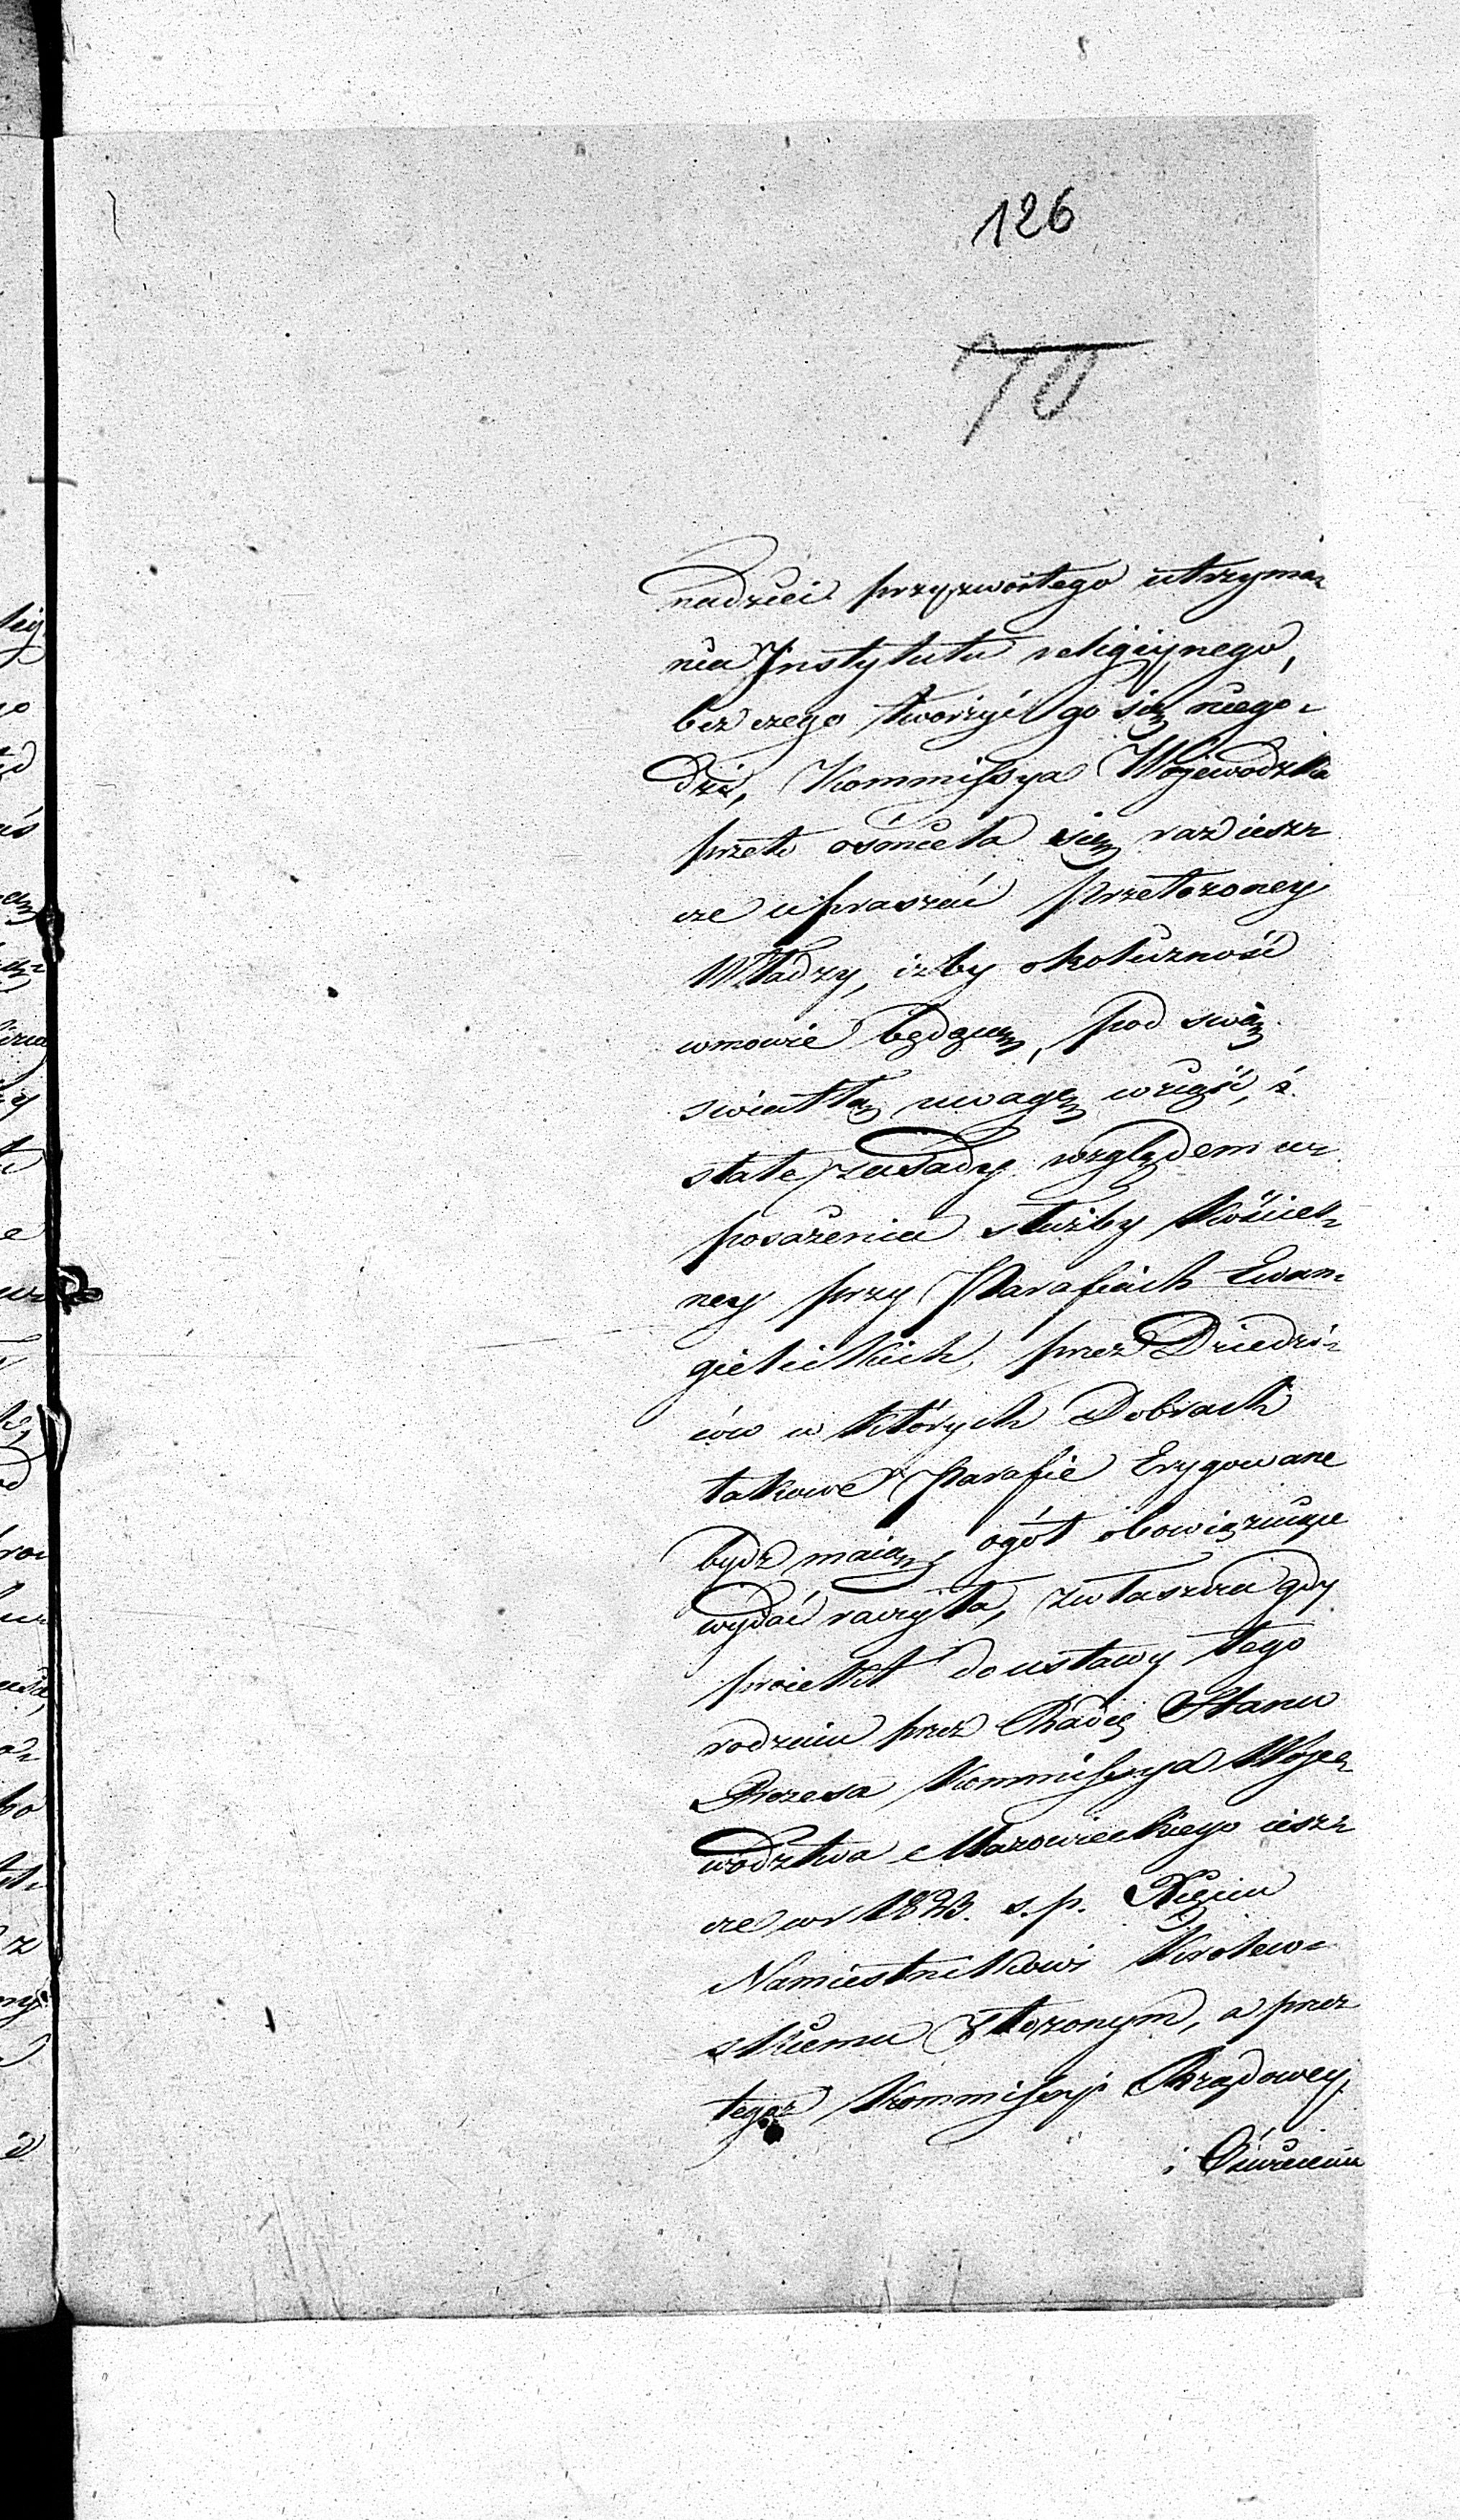 126
70
nadziei przyzwoitego utrzyma=
nia Instytutu religijnego,
bez czego tworzyć go się niego=
dzi, Kommissya Wojewodzka
przeto osmiela się raz ieszcz
cze upraszać Przełożoney
Władzy, iżby okoliczność
wmowie będącą, pod swą
swiatłą uwagę wziąść, i
stałe zasady względem u=
posażenia służby Kościel=
ney przy Parafiach Ewan=
gielickich, przez Dziedzi=
ców w których Dobrach
takowe Parafie Erygowane
bydz maią, ogół obowięzuiące
wydać raczyła, zwłaszcza gdy
proiekt do ustawy tego
rodzaiu przez Radcę Stanu
Prezesa Kommissya Woje=
wodztwa Mazowieckiego ieszz
cze w r 1823. s.p. Xięciu
Namiestnikowi Krolew=
skiemu złożonym, a przez
tegoż Kommissyi Rządowey
i Oświecenia